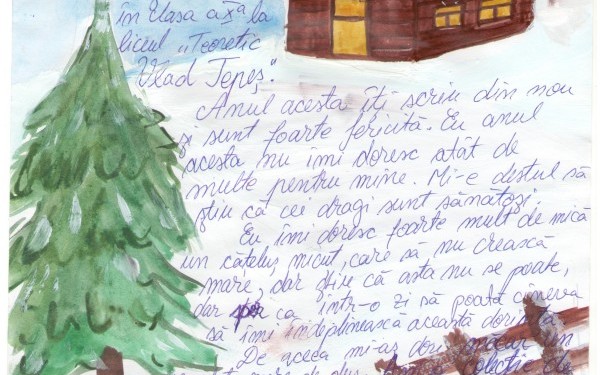 în Clasa a Xa la
liceul „Teoretic
Vlad Țepeș".
Anul acesta îți scriu din nou
și sunt foarte fericită. Eu anul
acesta nu îmi doresc atât de
multe pentru mine. Mi-e destul să
știu că cei dragi sunt sănătoși.
Eu îmi doresc foarte mult de mică
un cățeluș micuț, care să nu crească
mare, dar știe că asta nu se poate,
dar sper ca într-o zi să poată cineva
să îmi îndeplinească această dorință.
De aceea mi-aș dori măcar un
de pluș. Am o colecție de